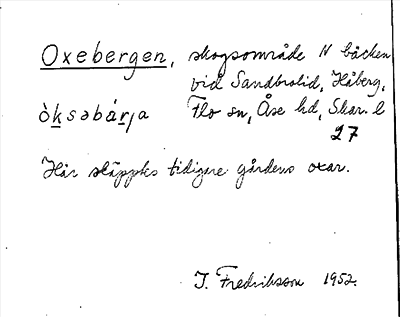 Oxebergen, skogsområde N bäcken
vid Sandbrolid, Håberg,
ò̀ksəbárja Flo sn, Åse hd, Skar. l
27
Här släpptes tidigare gårdens oxar.
I. Fredriksson 1952.